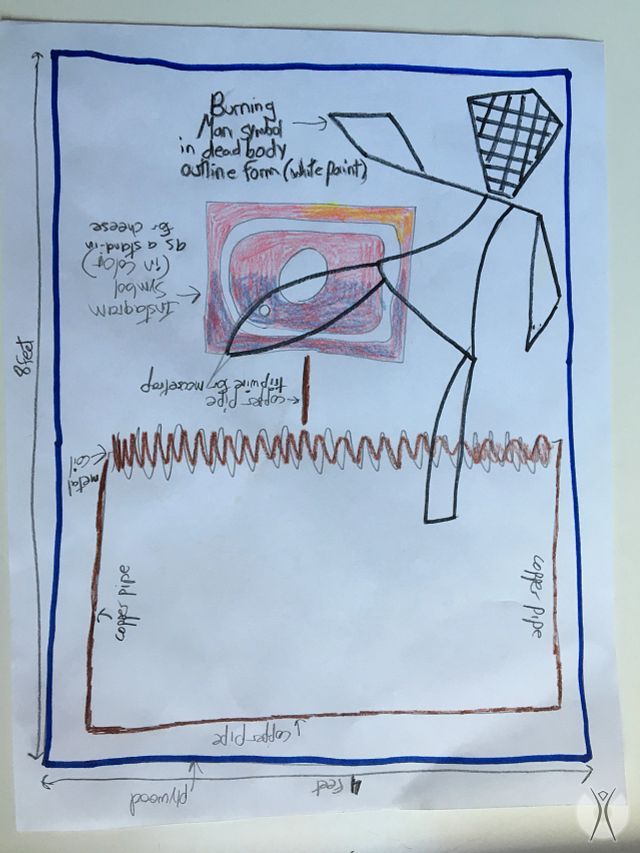 Burning
Man symbol
in dead body
outline form (white paint)
Instagram
symbol
(in color)
as a stand-in
for cheese
copper pipe
tripwire for mousetrap
8 feet
metal
coil
copper pipe
copper pipe
copper pipe
4 feet
plywood